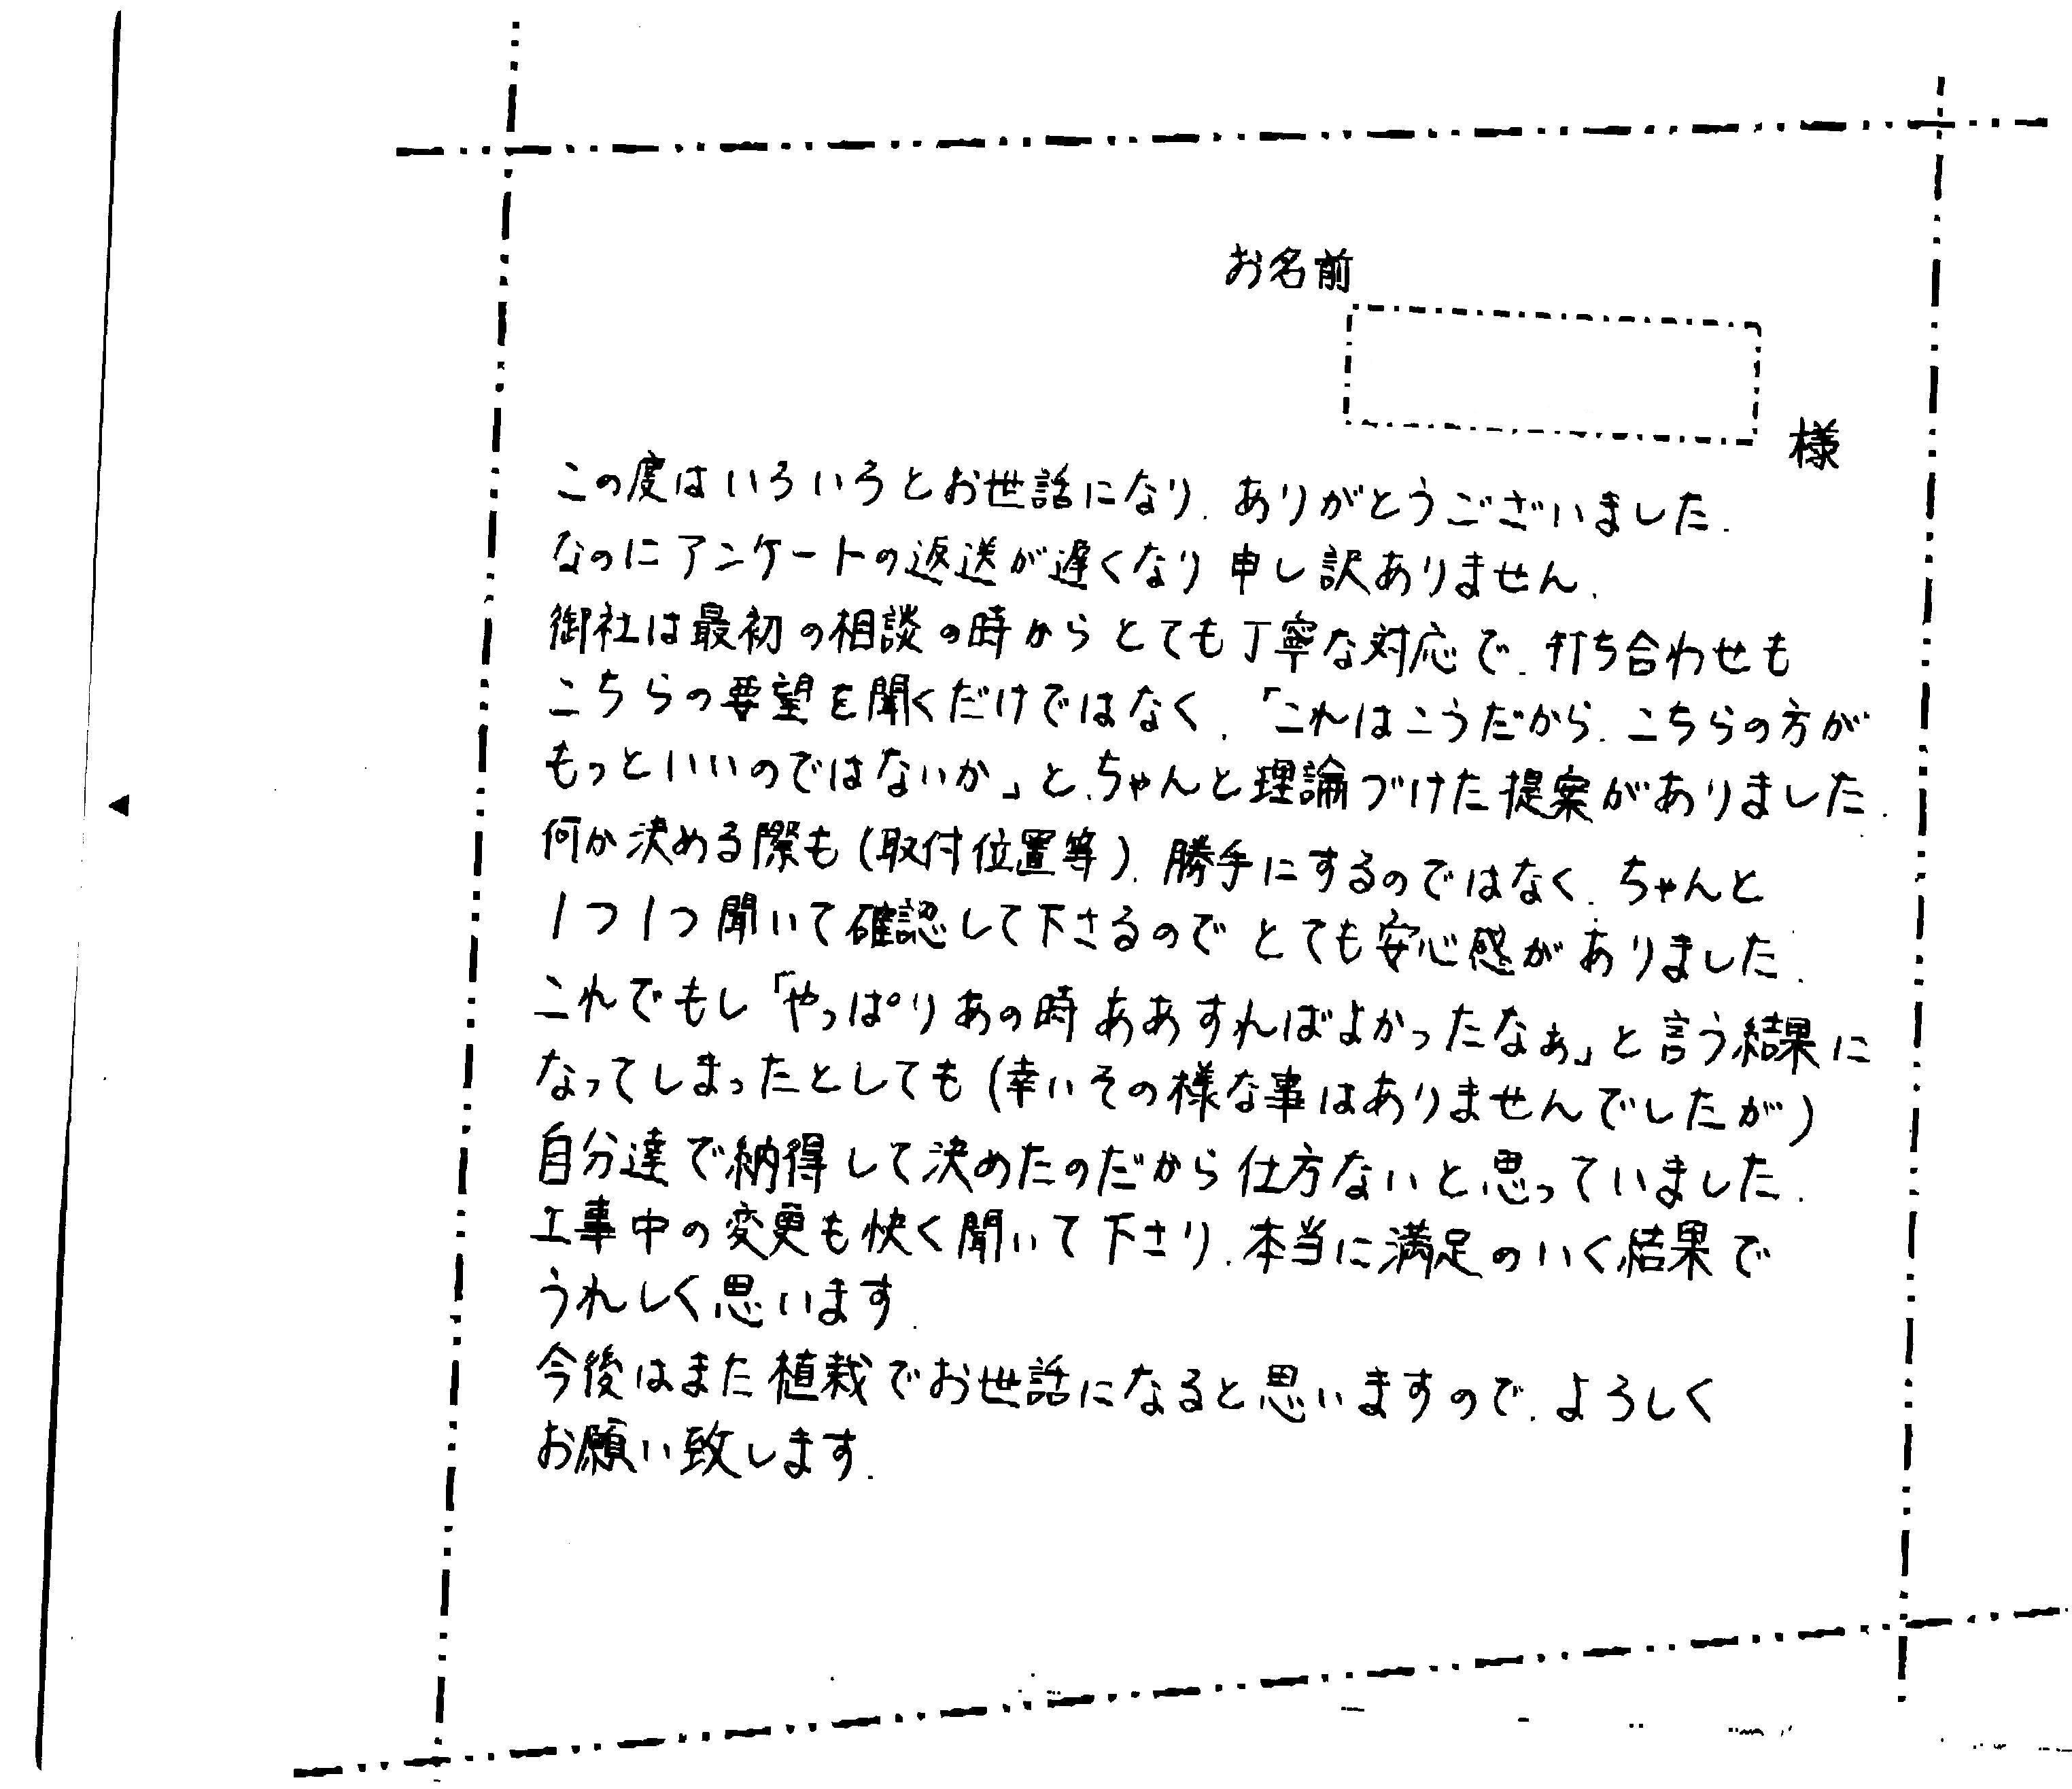 お名前
様
この度はいろいろとお世話になり.ありがとうございました.
なのにアンケートの返送が遅くなり申し訳ありません.
御社は最初の相談の時からとても丁寧な対応で.打ち合わせも
こちらの要望を聞くだけではなく.「これはこうだから.こちらの方が
もっといいのではないか」と.ちゃんと理論づけた提案がありました.
何か決める際も(取付位置等).勝手にするのではなく.ちゃんと
1つ1つ聞いて確認して下さるのでとても安心感がありました.
これでもし「やっぱりあの時ああすればよかったなぁ」と言う結果に
なってしまったとしても(幸いその様な事はありませんでしたが)
自分達で納得して決めたのだから仕方ないと思っていました.
工事中の変更も快く聞いて下さり.本当に満足のいく結果で
うれしく思います.
今後はまた植栽でお世話になると思いますので.よろしく
お願い致します.